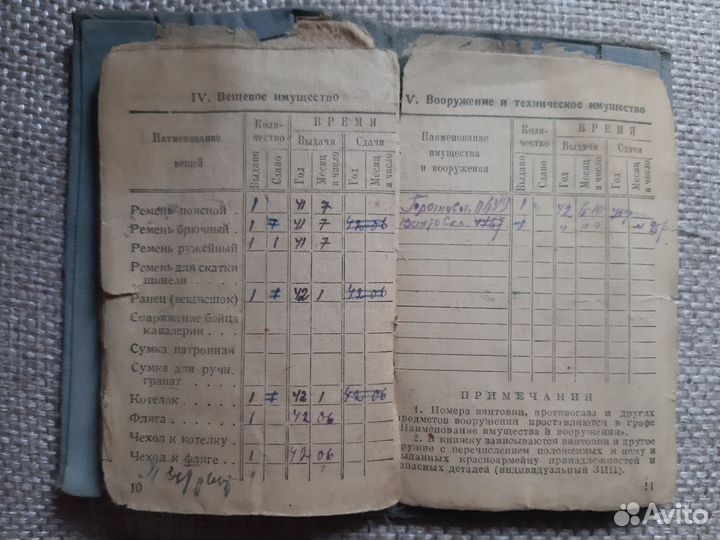 IV. Вещевое имущество
Наименование вещей
Коли-чество
ВРЕМЯ
Выдачи
Сдачи
Выдано
Сдано
Год
Месяц и число
Год
Месяц и число
Ремень поясной . 1 41 7
Ремень брючный . 1 41 7 42 06
Ремень ружейный 1 1 41 7
Ремень для скатки
шинели . . . .
Ранец (вещмешок) 1 42 1 42 06
Снаряжение бойца
кавалерии . . .
Сумка патронная
Сумка для ручн.
гранат . . . . .
Котелок . . . . . 1 42 1 42 06
Фляга . . . . . . 1 42 06
Чехол к котелку .
Чехол к фляге . . 42 06
10
V. Вооружение и техническое имущество
Наименование имущества и вооружения
Коли-чество
ВРЕМЯ
Выдачи
Сдачи
Выдано
Сдано
Год
Месяц и число
Год
Месяц и число
1 42
Винтовка 1
ПРИМЕЧАНИЯ
1. Номера винтовки, противогаза и других
предметов вооружения проставляются в графе
«Наименование имущества и вооружения».
2. В книжку записываются винтовки и другое
оружие с перечислением положенных к нему и
выданных красноармейцу принадлежностей и
запасных деталей (индивидуальный ЗИП).
11
Avito